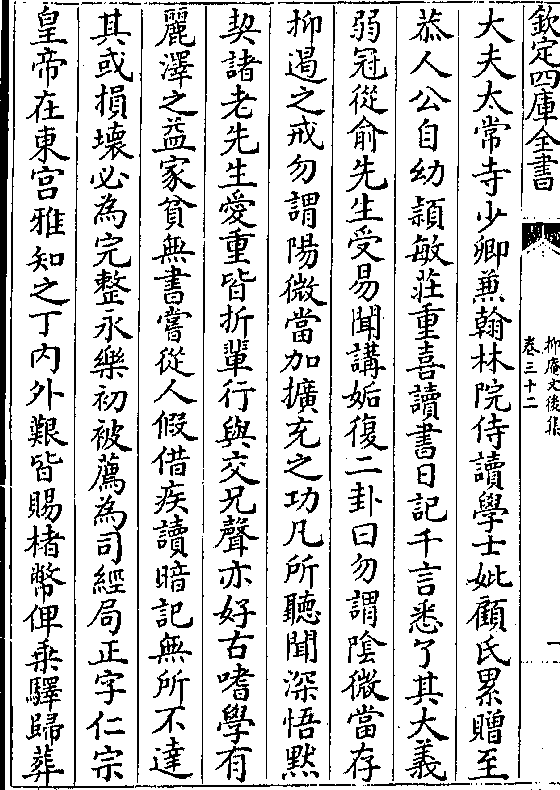 欽定四庫全書
抑庵文後集
卷三十二
大夫太常寺少卿兼翰林院侍讀學士妣顧氏累贈至
恭人公自幼穎敏莊重喜讀書日記千言悉了其大義
弱冠從俞先生受易聞講姤復二卦曰勿謂陰微當存
抑遏之戒勿謂陽微當加擴充之功凡所聽聞深悟默
契諸老先生愛重皆折輩行與交兄聲亦好古嗜學有
麗澤之益家貧無書嘗從人假借疾讀暗記無所不達
其或損壞必為完整永樂初被薦為司經局正字仁宗
皇帝在東宫雅知之丁内外艱皆賜楮幣俾乗驛歸葬